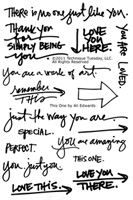 There is no one just like you.
Thank you
for
SIMPLY BEING
you
LOVE
YOU
HERE.
YOU ARE LOVED.
©2011 Technique Tuesday, LLC.
All Rights Reserved.
You are a work of art.
remember
THIS
This One by Ali Edwards
just the way you are.
SPECIAL.
PERFECT.
You are amazing
You just you.
THIS ONE.
LOVE THIS.
LOVE YOU
THERE.